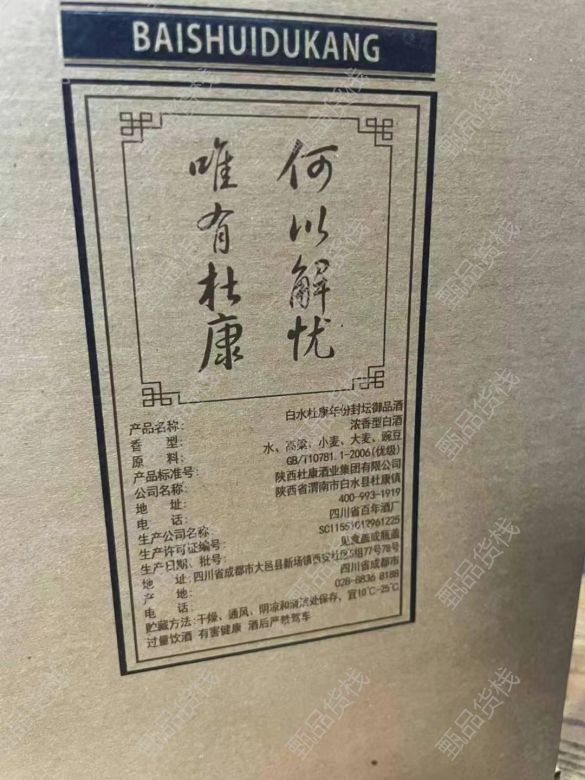 BAISHUIDUKANG
何以解忧
唯有杜康
产品名称: 白水杜康年份封坛御品酒
香 型: 浓香型白酒
原 料: 水、高粱、小麦、大麦、豌豆
产品标准号: GB/T10781.1-2006(优级)
公司名称: 陕西杜康酒业集团有限公司
地 址: 陕西省渭南市白水县杜康镇
电 话: 400-993-1919
生产公司名称: 四川省百年酒厂
生产许可证编号: SC11551012961225
生产日期、批号: 见食盖或瓶盖
地 址: 四川省成都市大邑县新场镇西安社区5组77号78号
产 地: 四川省成都市
电 话: 028-8836 8188
贮藏方法: 干燥、通风、阴凉和清洁处保存，宜10℃-25℃
过量饮酒 有害健康 酒后严禁驾车
甄品货栈